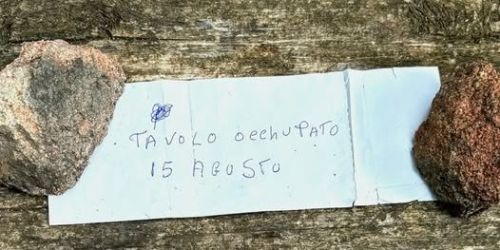 TAVOLO OCCHUPATO
15 AGOSTO